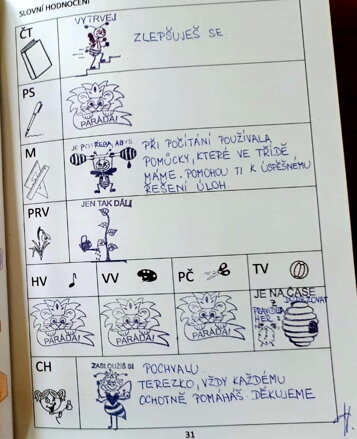 SLOVNÍ HODNOCENÍ
ČT
VYTRVEJ
ZLEPŠUJEŠ SE.
PS
PARÁDA!
M
JE POTŘEBA, ABYS
PŘI POČÍTÁNÍ POUŽÍVALA
POMŮCKY, KTERÉ VE TŘÍDĚ
MÁME. POMOHOU TI K ÚSPĚŠNÉMU
ŘEŠENÍ ÚLOH.
PRV
JEN TAK DÁL!
HV
VV
PČ
TV
PARÁDA!
PARÁDA!
PARÁDA!
JE NA ČASE
DODRŽOVAT
PRAVIDLA
HER
CH
ZASLOUŽÍŠ SI
POCHVALU.
TEREZKO, VŽDY KAŽDÉMU
OCHOTNĚ POMÁHÁŠ. DĚKUJEME
31